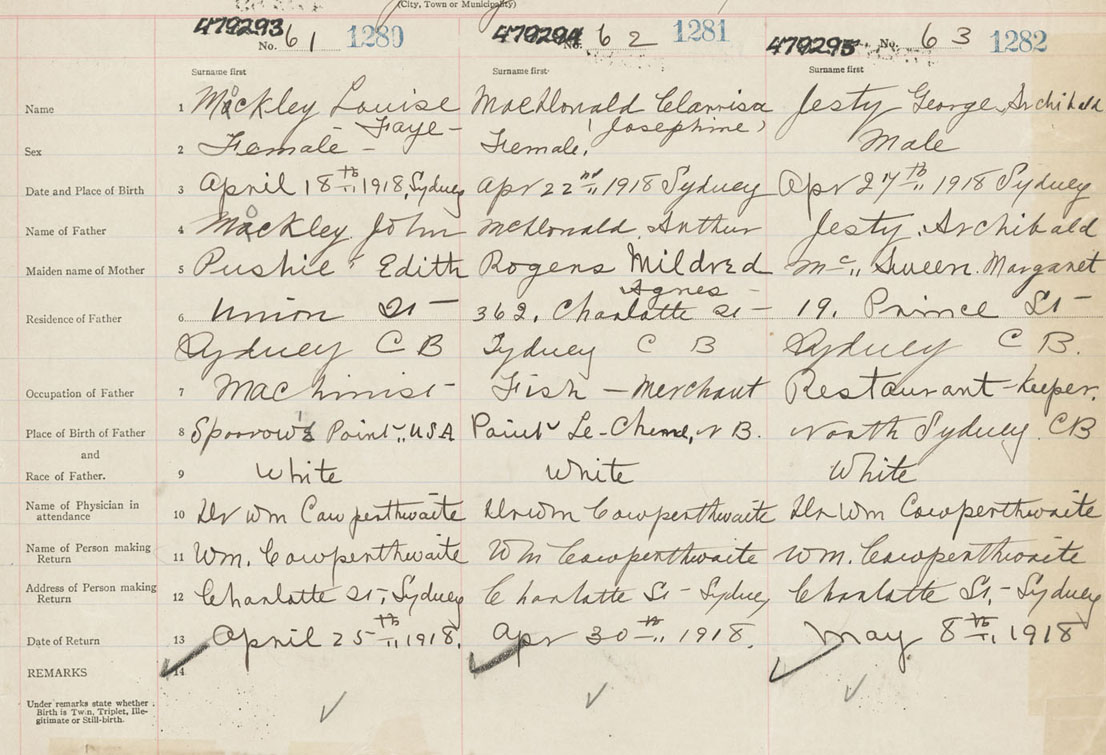 (City, Town or Municipality)
479293 No. 61 1280 479294 No. 62 1281 479295 No. 63 1282
Surname first Surname first Surname first
Name 1 Mackley Louise MacDonald Clarrisa Jesty George Archibald
Faye — (Josephine)
Sex 2 Female — Female, Male
Date and Place of Birth 3 April 18th 1918, Sydney Apr 22nd, 1918 Sydney Apr 27th, 1918 Sydney
Name of Father 4 Mackley John McDonald, Arthur Jesty, Archibald
Maiden name of Mother 5 Pushie Edith Rogers Mildred Mc Sween. Margaret
Agnes —
Residence of Father 6 Union St — 362, Charlotte St — 19, Prince St —
Sydney C B Sydney C B Sydney C B.
Occupation of Father 7 Machinist — Fish — Merchant Restaurant — Keeper.
Place of Birth of Father 8 Sparrow's Point, USA Point Le-Chene, N B. North Sydney, CB
and
Race of Father. 9 White White White
Name of Physician in attendance 10 Dr Wm Cowperthwaite Dr Wm Cowperthwaite Dr Wm Cowperthwaite
Name of Person making Return 11 Wm. Cowperthwaite Wm Cowperthwaite Wm. Cowperthwaite
Address of Person making Return 12 Charlotte St, Sydney Charlotte St — Sydney Charlotte St, — Sydney
Date of Return 13 April 25th, 1918. Apr 30th, 1918. May 8th, 1918
REMARKS 14
Under remarks state whether
Birth is Twin, Triplet, Ille-
gitimate or Still-birth.